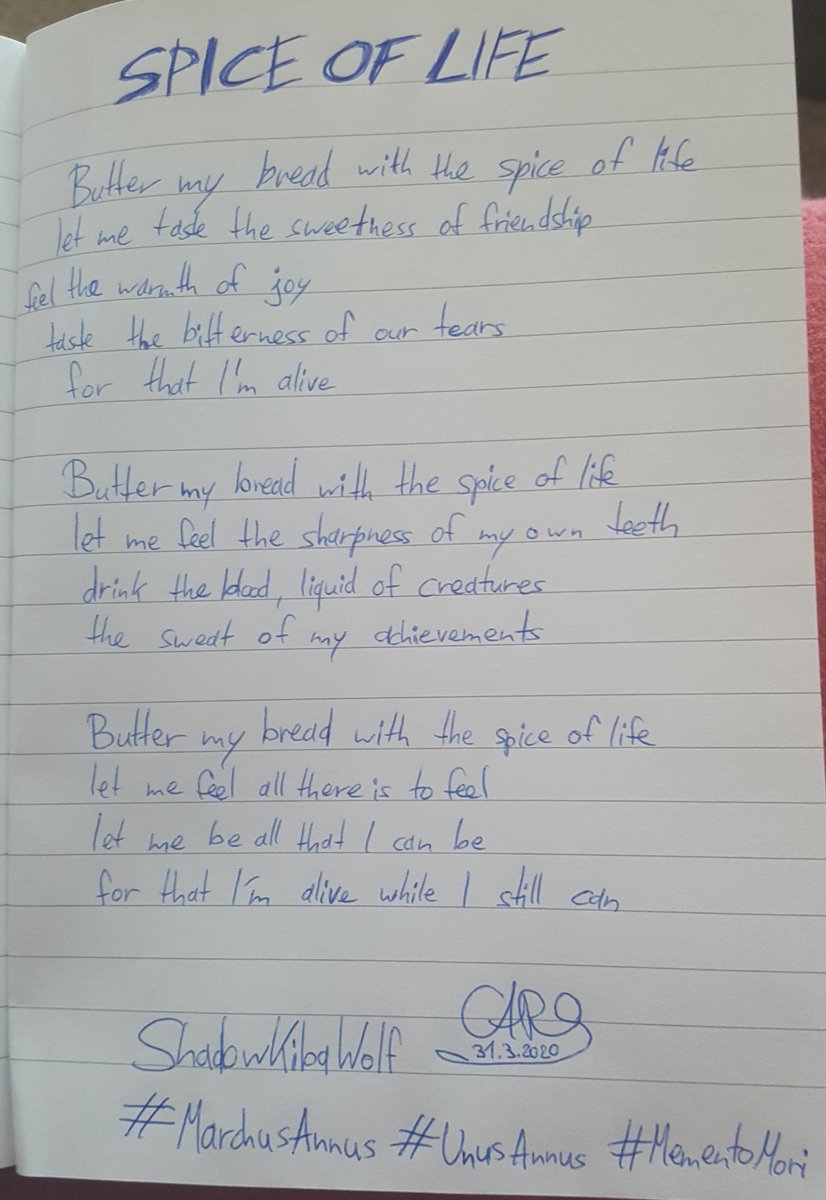 SPICE OF LIFE
Butter my bread with the spice of life
let me taste the sweetness of friendship
feel the warmth of joy
taste the bitterness of our tears
for that I'm alive
Butter my bread with the spice of life
let me feel the sharpness of my own teeth
drink the blood, liquid of creatures
the sweat of my achievements
Butter my bread with the spice of life
let me feel all there is to feel
let me be all that I can be
for that I'm alive while I still can
ShadowKibaWolf
31.3.2020
#MarchusAnnus #UnusAnnus #MementoMori